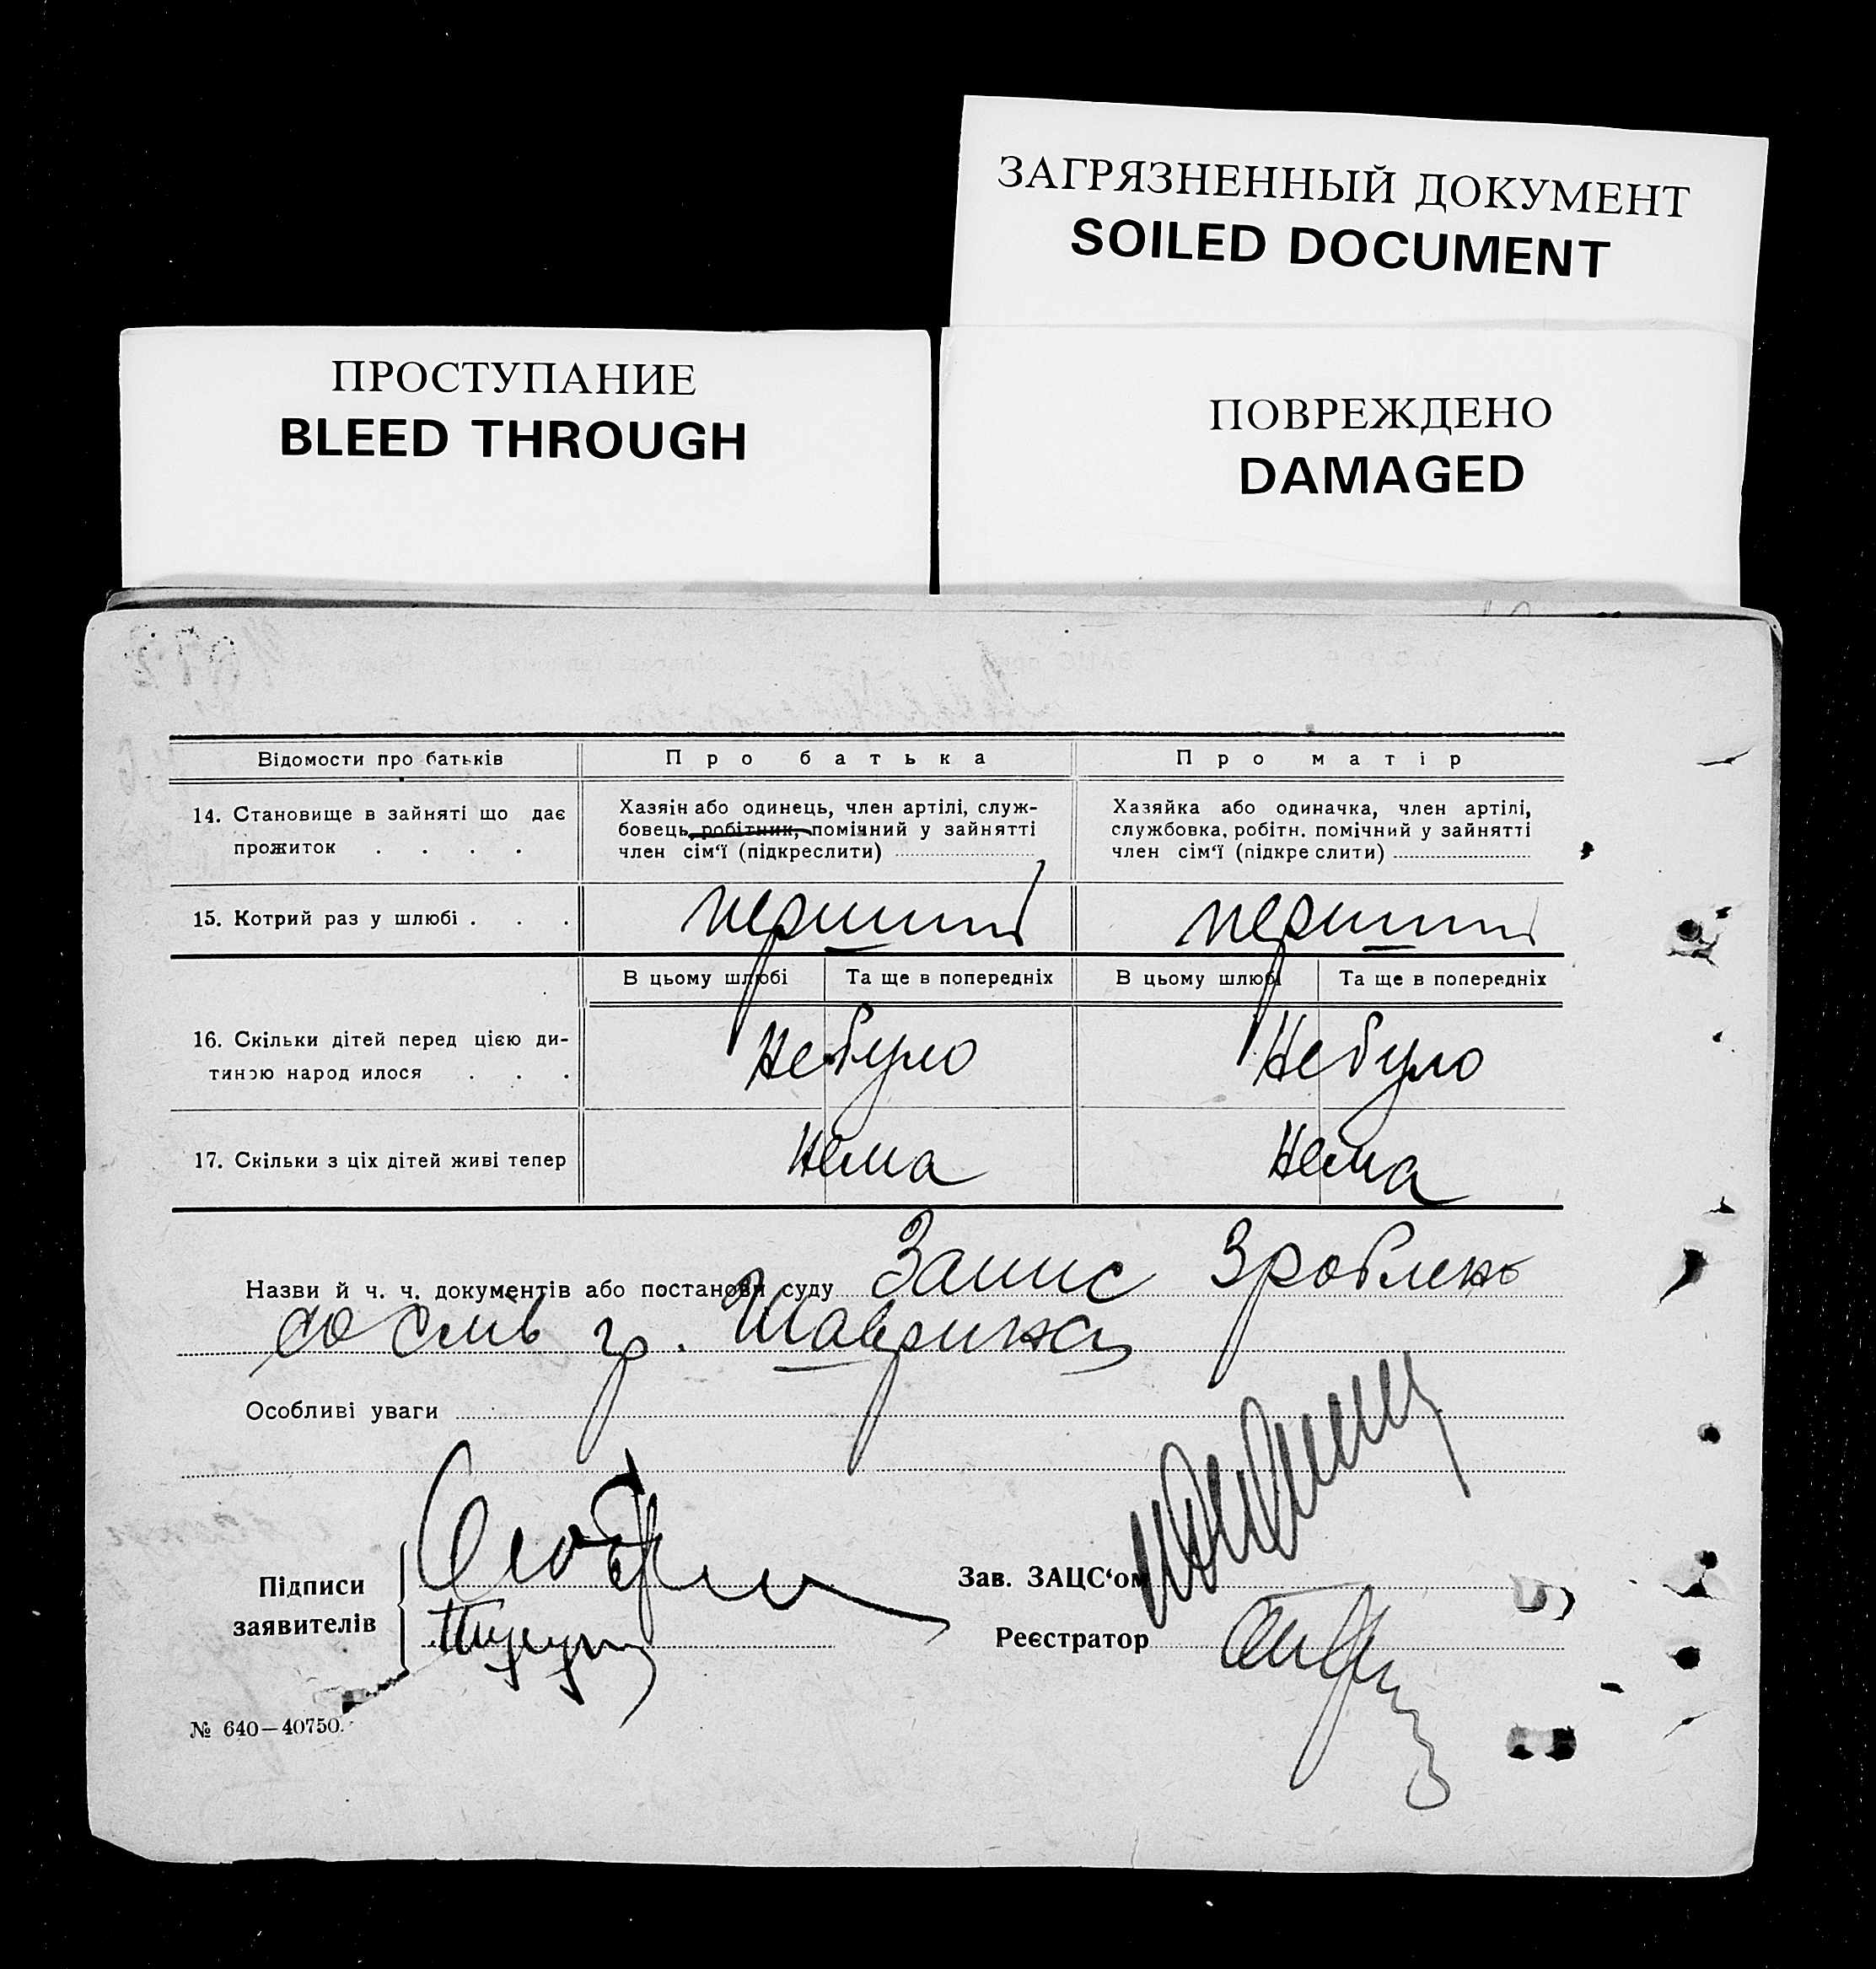 ЗАГРЯЗНЕННЫЙ ДОКУМЕНТ
SOILED DOCUMENT
ПРОСТУПАНИЕ
BLEED THROUGH
ПОВРЕЖДЕНО
DAMAGED
Відомости про батьків
Про батька
Про матір
14. Становище в зайняті що дає
прожиток . . . .
Хазяїн або одинець, член артілі, служ-
бовець, робітник, помічний у зайнятті
член сім‘ї (підкреслити)
Хазяйка або одиначка, член артілі,
службовка, робітн. помічний у зайнятті
член сім‘ї (підкреслити)
15. Котрий раз у шлюбі . . .
перший
перший
В цьому шлюбі
Та ще в попередніх
В цьому шлюбі
Та ще в попередніх
16. Скільки дітей перед цією ди-
тиною народилося . . .
Небуло
Небуло
17. Скільки з ціх дітей живі тепер
Нема
Нема
Назви й ч. ч. документів або постанови суду Запис Зроблено
гр.
Особливі уваги
Підписи
заявителів
Зав. ЗАЦС‘ом
Реєстратор
№ 640—40750.